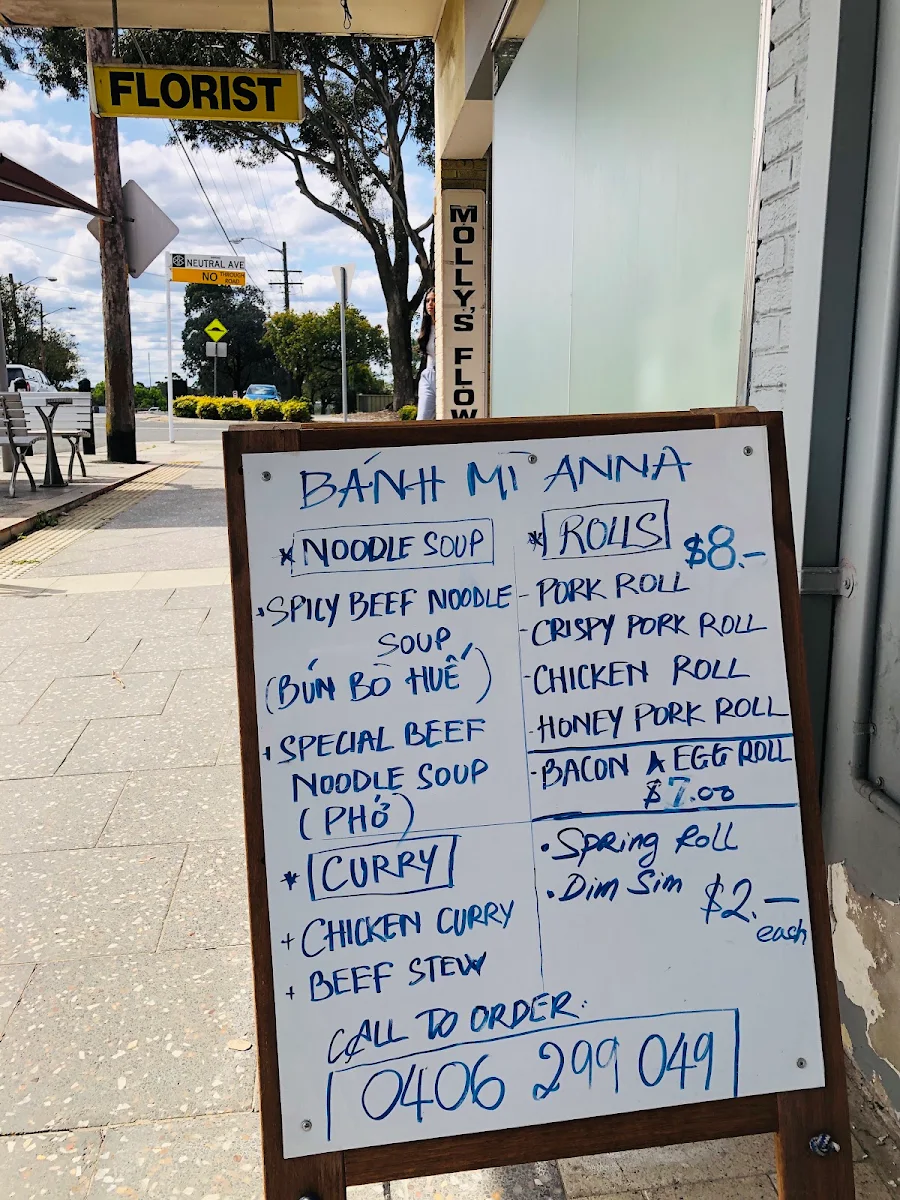 FLORIST
NEUTRAL AVE
NO THROUGH ROAD
MOLLY'S FLOW
BÁNH MÌ ANNA
* NOODLE SOUP
SPICY BEEF NOODLE
SOUP
(BÚN BÒ HUẾ)
+ SPECIAL BEEF
NOODLE SOUP
(PHỞ)
* CURRY
+ CHICKEN CURRY
+ BEEF STEW
* ROLLS $8.-
- PORK ROLL
- CRISPY PORK ROLL
- CHICKEN ROLL
- HONEY PORK ROLL
- BACON & EGG ROLL
$7.00
• Spring Roll
• Dim Sim $2.-
each
CALL TO ORDER:
0406 299 049